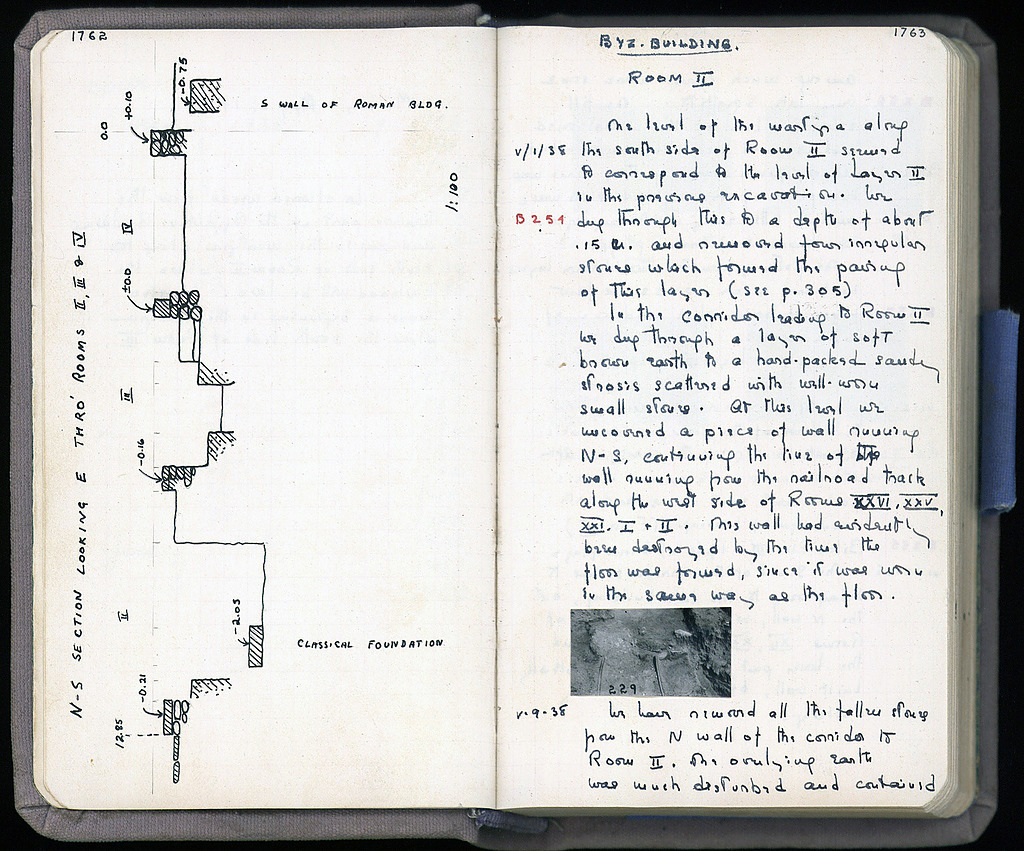 1762
-0.75
S WALL OF ROMAN BLDG.
+0.10
0.0
1:100
IV
±0.0
N-S SECTION LOOKING E THRO' ROOMS II, III & IV
III
-0.16
II
-2.05
CLASSICAL FOUNDATION
-0.21
12.85
1763
BYZ. BUILDING.
ROOM II
The level of the along
V/1/38 the south side of Room II seemed
to correspond to the level of Layer II
in the previous excavation. We
B 254 dug through this to a depth of about
.15 m. and removed four irregular
stones which formed the paving
of this layer (see p. 305)
In the corridor leading to Room II
we dug through a layer of soft
brown earth to a hard-packed sandy
strosis scattered with well-worn
small stones. At this level we
uncovered a piece of wall running
N-S, continuing the line of the
wall running from the railroad track
along the west side of Rooms XXVI, XXV,
XXI, I + II. This wall had evidently
been destroyed by the time the
floor was formed, since it was worn
in the same way as the floor.
229
V-9-38 We have removed all the fallen stones
from the N wall of the corridor to
Room II. The overlying earth
was much disturbed and contained